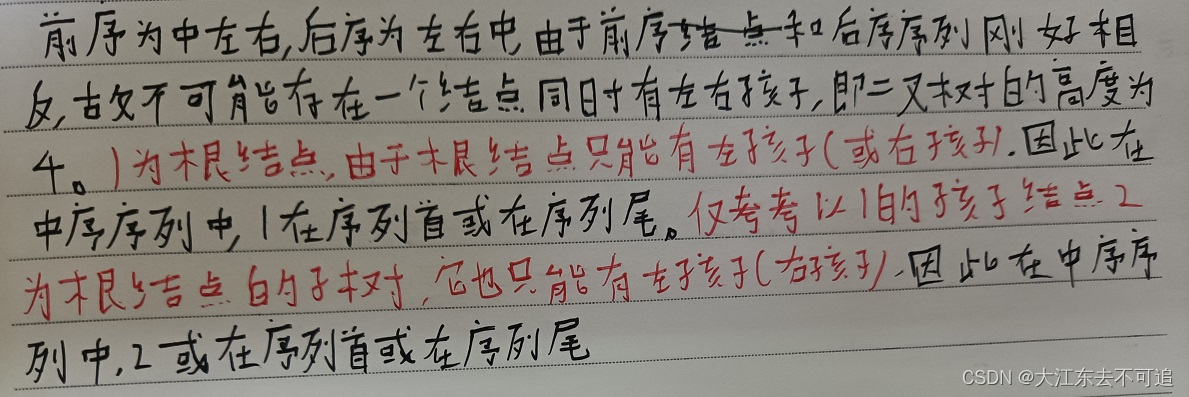 前序为中左右,后序为左右中,由于前序和后序序列刚好相
反,故不可能存在一个结点同时有左右孩子,即二叉树的高度为
4。1为根结点,由于根结点只能有左孩子(或右孩子).因此在
中序序列中,1在序列首或在序列尾。仅考考以1的子孩子结点2
为根结点的子树,它也只能有左子孩子(右孩子).因此在中序序
列中,2或在序列首或在序列尾
CSDN @大江东去不可追